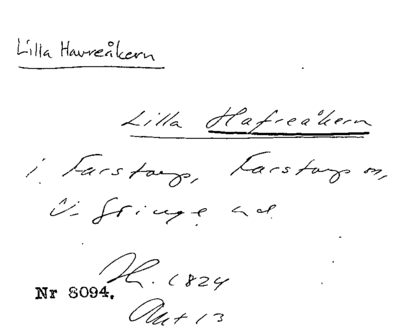 Lilla Havreåkern
Lilla Hafreåkern
i Farstorp, Farstorp sn,
V. Göinge hd.
1824
Nr 8094.
Akt 13